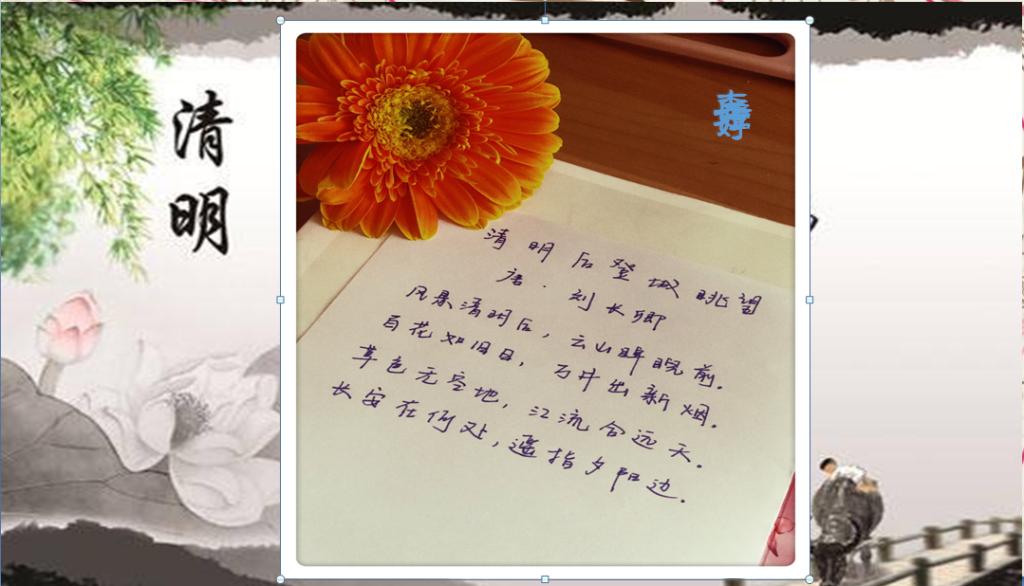 清明
清明后登城眺望
唐.刘长卿
风景清明后,云山睥睨前.
百花如旧日,万井出新烟.
草色无空地,江流合远天.
长安在何处,遥指夕阳边.